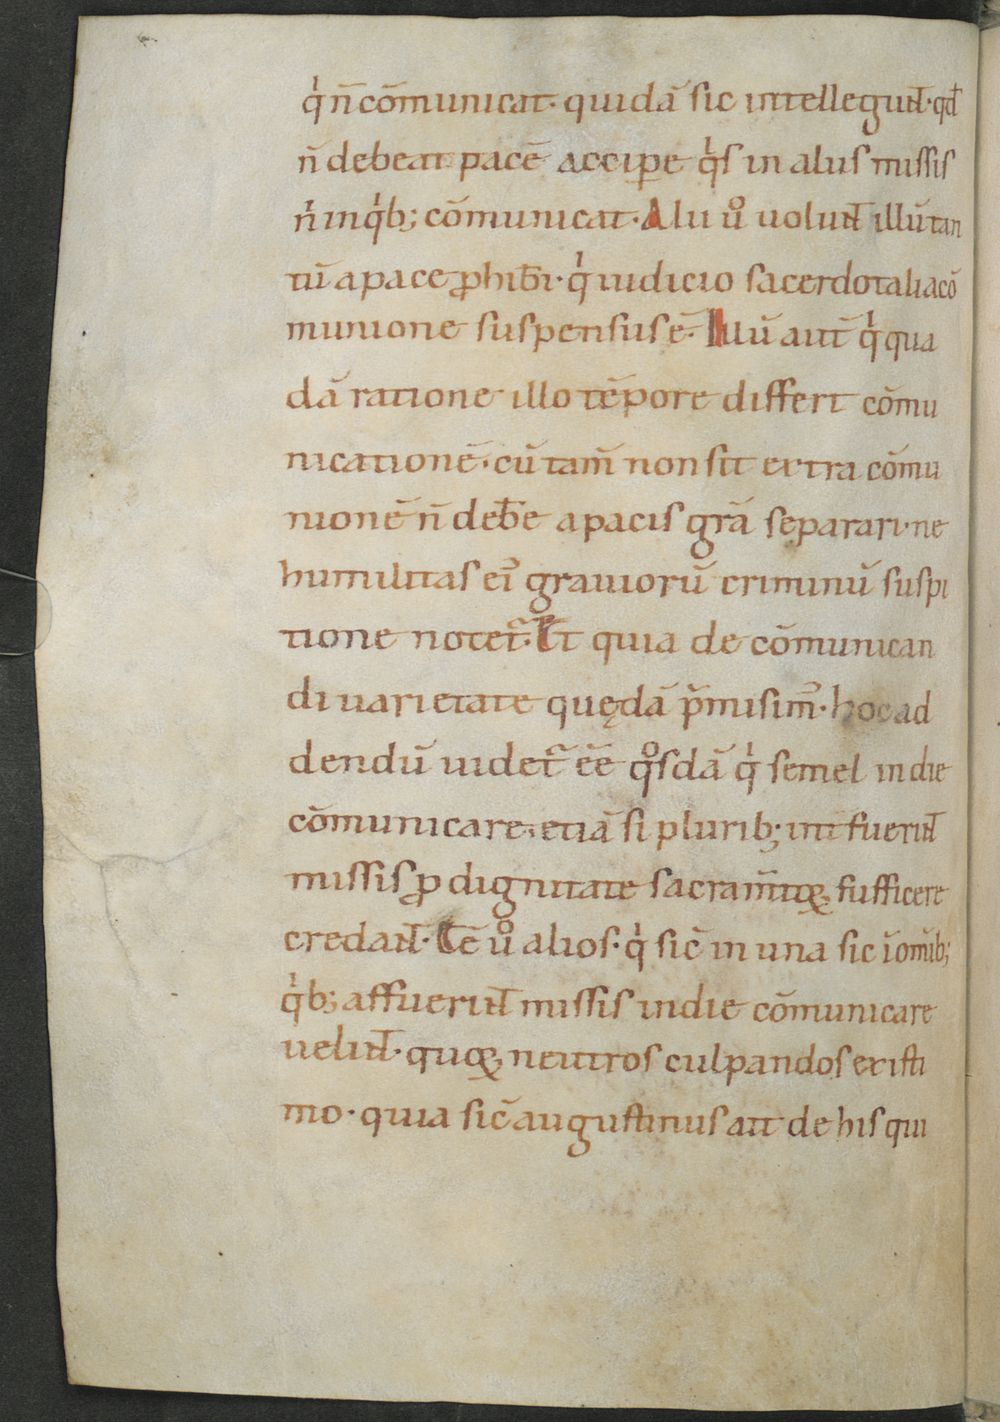 qͥ n̄ cōmunicat· quidā sic intellegunt̄· qđ
n̄ debeat pacē accip̱e qͥs in aliis missis
n̄ inqͥb; cōmunicat· Alii uͦ uolunt̄ illū tan
tū a pace ꝓhib̄i· qͥ iudicio sacerdotali a cō
munione suspensus ē· Illū aut̄ qͥ qua
dā ratione illo tēpore differt cōmu
nicationē· cū tam̄ non sit extra cōmu
nionē n̄ deb̄e a pacis grā separari· ne
humilitas ei᷒ grauiorū criminū suspi
tione notet᷑· Et quia de cōmunican
di uarietate quędā p̄misim᷒· hoc ad
dendū uidet᷑ eē qͦsdā qͥ semel in die
cōmunicare· etiā si plurib; int̄fuerint̄
missis ꝓ dignitate sacram̄toꝝ sufficere
credant̄· Eē uͦ alios· qͥ sic̄ in una sic ī om̄ib;
qͥb; affuerint̄ missis in die cōmunicare
uelint̄· quoꝝ neutros culpandos existi
mo· quia sic̄ augustinus ait de his qui